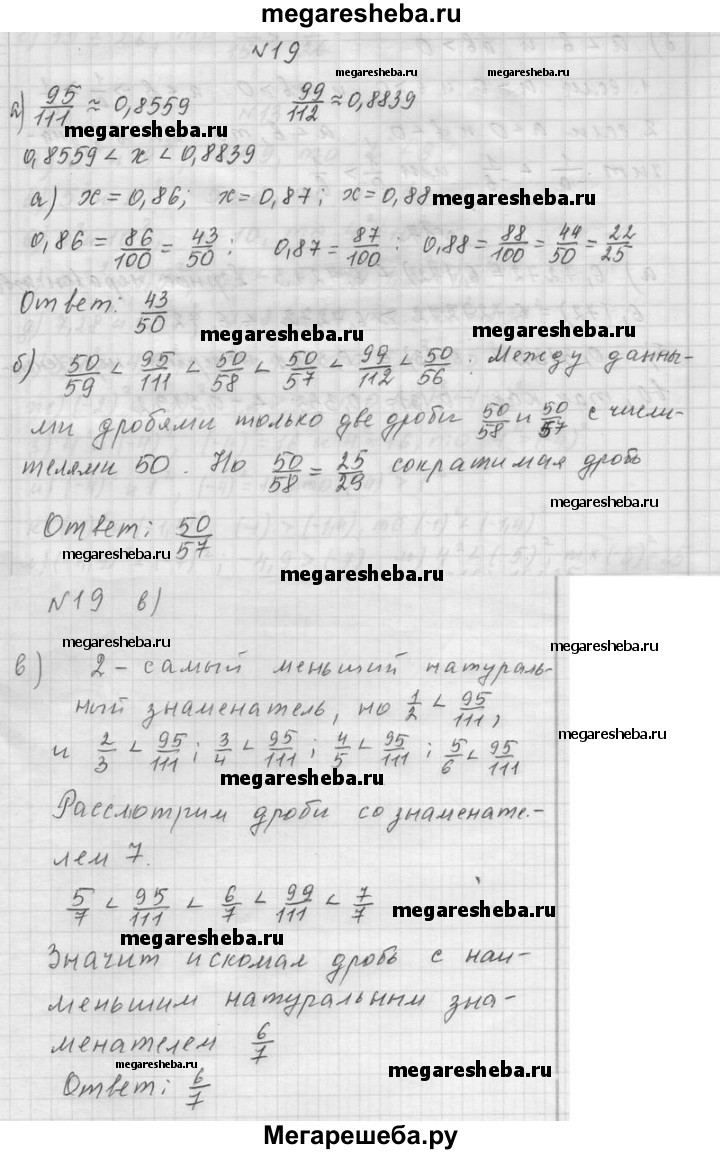 megaresheba.ru
№19
megaresheba.ru megaresheba.ru
а) 95/111 ≈ 0,8559 99/112 ≈ 0,8839
megaresheba.ru
0,8559 < x < 0,8839
а) x = 0,86; x = 0,87; x = 0,88
megaresheba.ru
0,86 = 86/100 = 43/50; 0,87 = 87/100; 0,88 = 88/100 = 44/50 = 22/25
Ответ: 43/50
megaresheba.ru megaresheba.ru
б) 50/59 < 95/111 < 50/58 < 50/57 < 99/112 < 50/56. Между данны-
ми дробями только две дроби 50/58 и 50/57 с числи-
телями 50. Но 50/58 = 25/29 сократимая дробь
megaresheba.ru
Ответ: 50/57
megaresheba.ru
megaresheba.ru
№19 в)
megaresheba.ru
megaresheba.ru
в) 2 - самый меньший натураль-
ный знаменатель, но 1/2 < 95/111,
megaresheba.ru
и 2/3 < 95/111; 3/4 < 95/111; 4/5 < 95/111; 5/6 < 95/111
megaresheba.ru
Рассмотрим дроби со знаменате-
лем 7.
5/7 < 95/111 < 6/7 < 99/111 < 7/7
megaresheba.ru
megaresheba.ru
Значит искомая дробь с наи-
меньшим натуральным зна-
менателем 6/7
megaresheba.ru
megaresheba.ru
Ответ: 6/7
Мегарешеба.ру